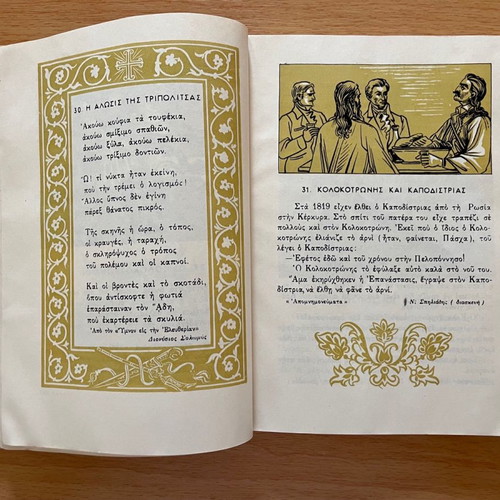 30. Η ΑΛΩΣΙΣ ΤΗΣ ΤΡΙΠΟΛΙΤΣΑΣ
Ἀκούω κούφια τὰ τουφέκια,
ἀκούω σμίξιμο σπαθιῶν,
ἀκούω ξύλα, ἀκούω πελέκια,
ἀκούω τρίξιμο δοντιῶν.
Ὤ! τί νύκτα ἦταν ἐκείνη,
ποὺ τὴν τρέμει ὁ λογισμός!
Ἄλλος ὕπνος δὲν ἐγίνη
πάρεξ θάνατος πικρός.
Τῆς σκηνῆς ἡ ὥρα, ὁ τόπος,
οἱ κραυγές, ἡ ταραχή,
ὁ σκληρόψυχος ὁ τρόπος
τοῦ πολέμου καὶ οἱ καπνοί.
Καὶ οἱ βροντὲς καὶ τὸ σκοτάδι,
ὅπου ἀντίσκοφτε ἡ φωτιά
ἐπαράσταιναν τὸν Ἅδη,
ποὺ ἐκαρτέρειε τὰ σκυλιά.
Ἀπὸ τὸν «Ὕμνον εἰς τὴν Ἐλευθερίαν»
Διονύσιος Σολωμος
31. ΚΟΛΟΚΟΤΡΩΝΗΣ ΚΑΙ ΚΑΠΟΔΙΣΤΡΙΑΣ
Στὰ 1819 εἶχεν ἔλθει ὁ Καποδίστριας ἀπὸ τὴ Ρωσία
στὴν Κέρκυρα. Στὸ σπίτι τοῦ πατέρα του εἶχε τραπέζι σὲ
πολλοὺς καὶ στὸν Κολοκοτρώνη. Ἐκεῖ ποὺ ὁ ἴδιος ὁ Κολο-
κοτρώνης ἐλιάνιζε τὸ ἀρνὶ (ἦταν, φαίνεται, Πάσχα), τοῦ
λέγει ὁ Καποδίστριας:
—Ἐφέτος ἐδῶ καὶ τοῦ χρόνου στὴν Πελοπόννησο!
Ὁ Κολοκοτρώνης τὸ ἐφύλαξε αὐτὸ καλὰ στὸ νοῦ του.
Ἅμα ἐκηρύχθηκεν ἡ Ἐπανάστασις, ἔγραψε στὸν Καπο-
δίστρια, νὰ ἔλθῃ νὰ φᾶνε τὸ ἀρνί.
«Ἀπομνημονεύματα» Ν. Σπηλιάδης (διασκευή)